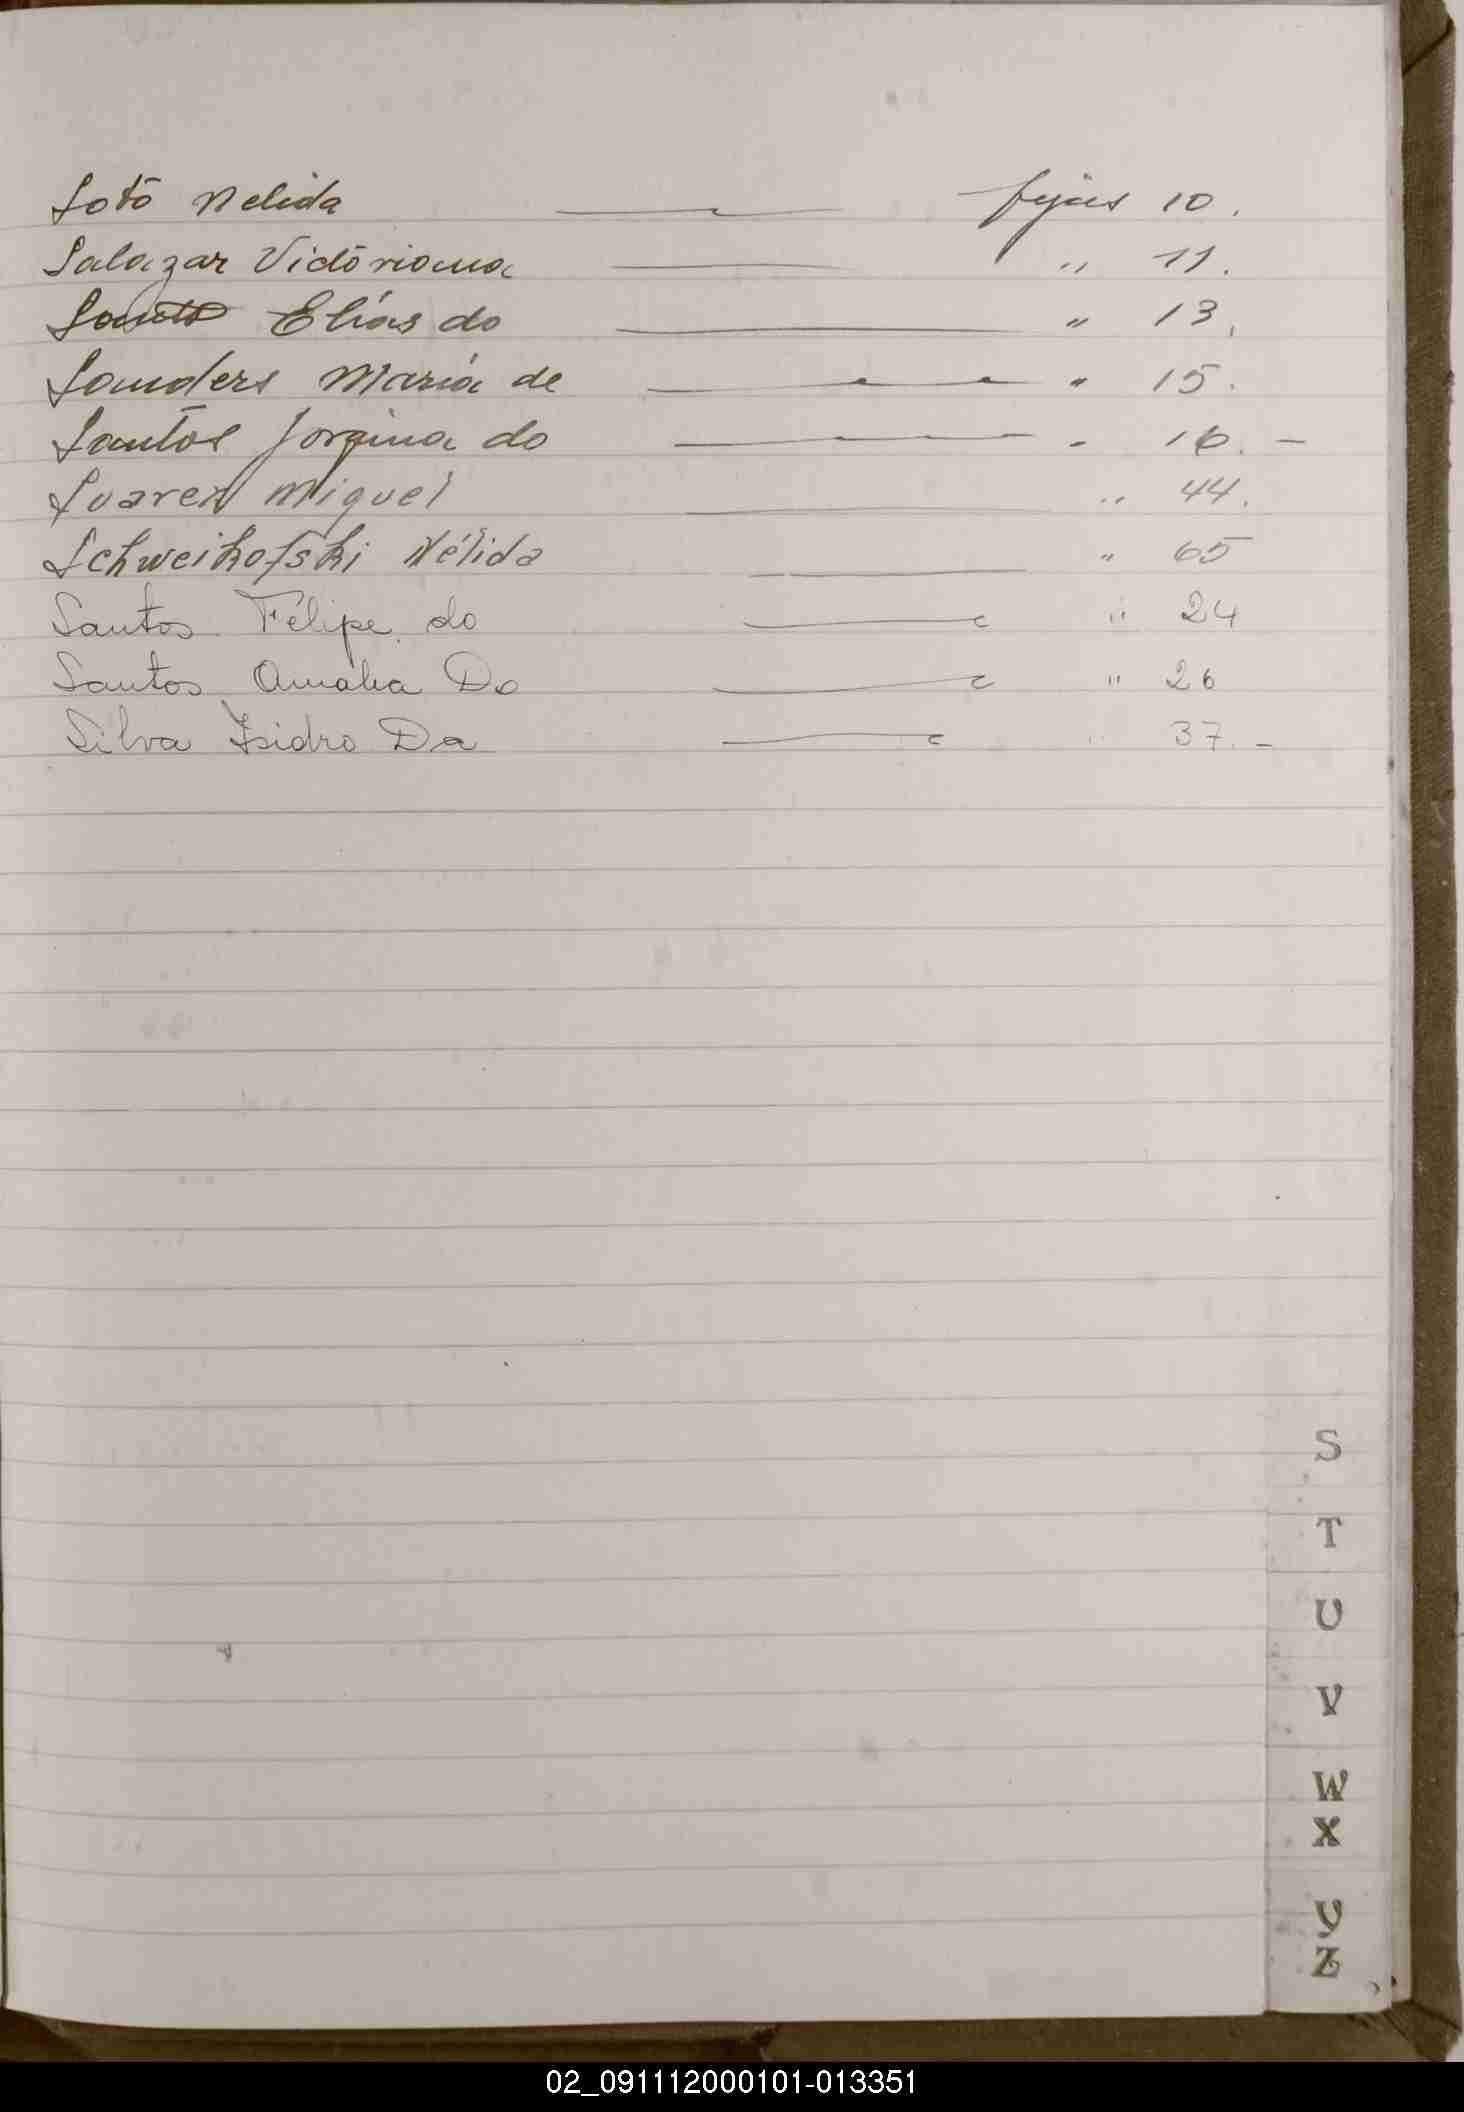 Soto Nelida fojas 10.
Salazar Victoriana " 11.
Santo Elías do " 13.
Saunders María de " 15.
Santos Jorgina do " 16. -
Suarez Miguel " 44.
Schweikofski Nélida " 65
Santos Félipe do " 24
Santos Amalia Do " 26
Silva Isidro Da " 37. -
S
T
U
V
W
X
Y
Z
02_091112000101-013351